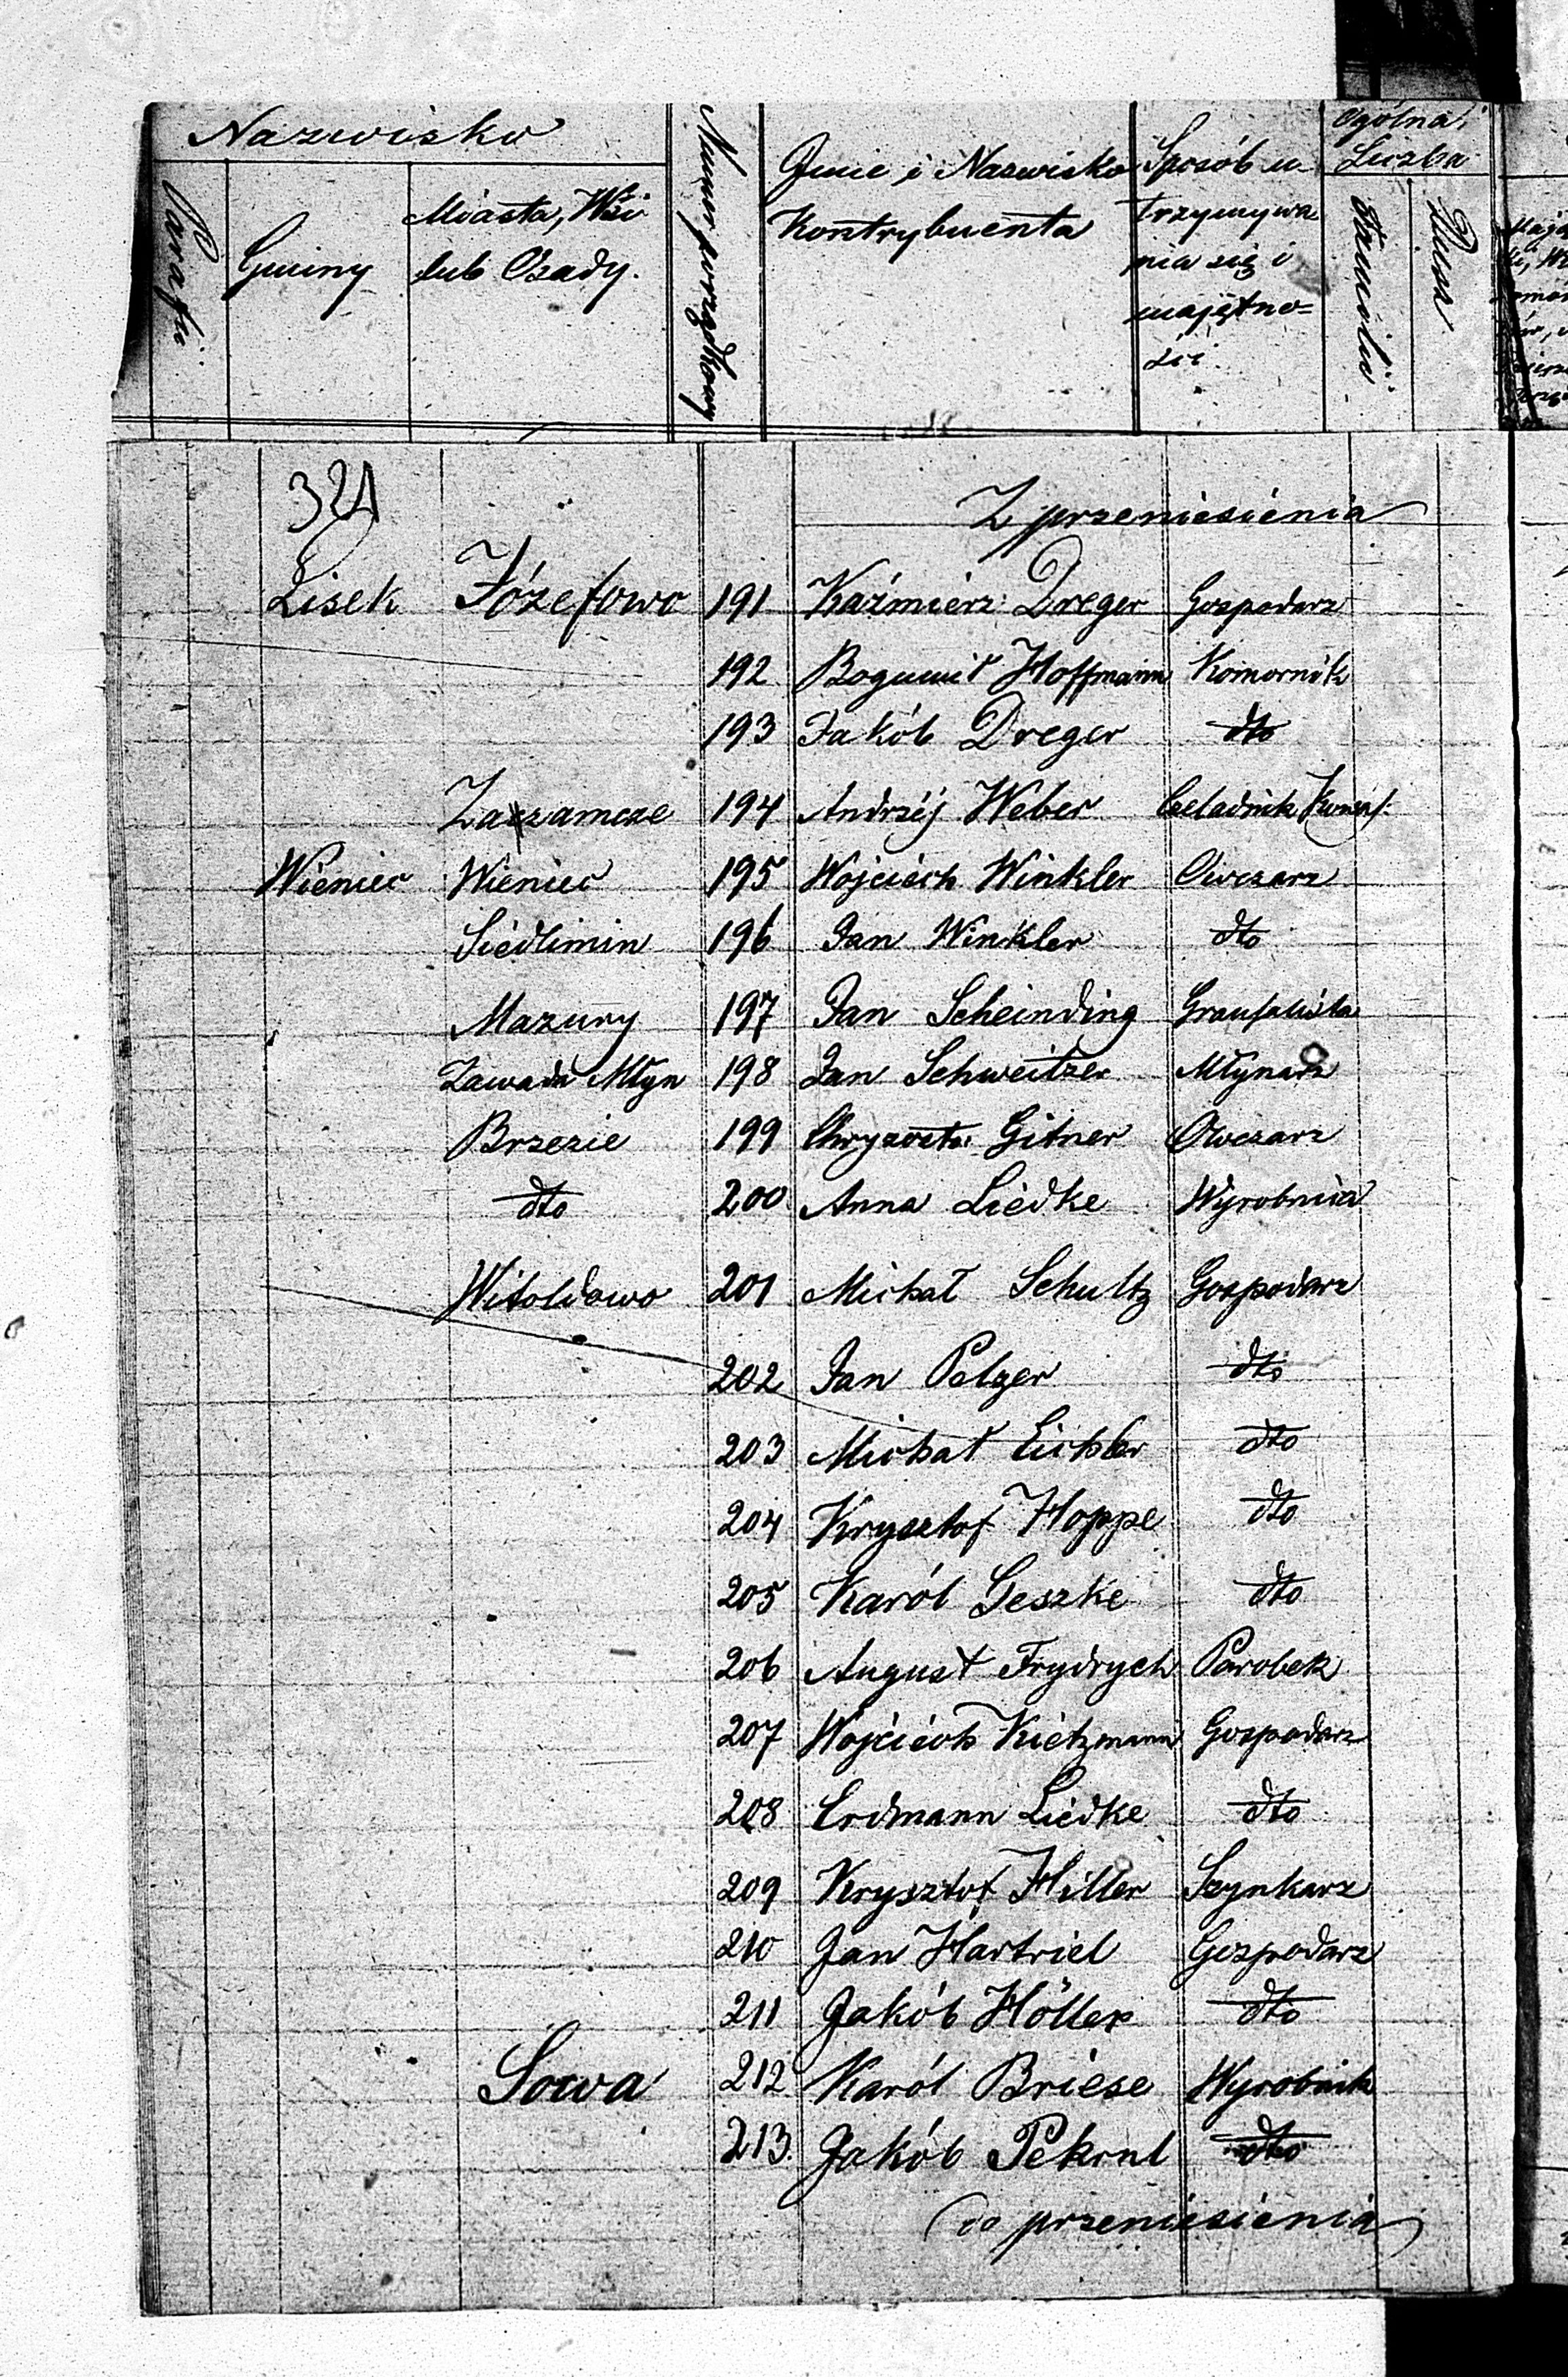 Nazwisko
Parafii
Gminy
Miasta, Wsi
lub Osady.
Numer porządkowy
Imie i Nazwisko
Kontrybuenta
Sposób u-
trzymywa
nia się i
majętno=
ści
Ogólna
Liczba
Familii
Dusz
324
Z przeniesienia
Lisek Józefowo 191 Kaźmierz Dreger Gospodarz
192 Bogumił Hoffmann Komornik
193 Jakób Dreger dto
Zazamcze 194 Andrzéj Weber Czeladnik
Wieniec Wieniec 195 Wojciech Winkler Owczarz
Siedlimin 196 Jan Winkler dto
Mazury 197 Jan Scheinding
Zawada Młyn 198 Jan Schweitzer Młynarz
Brzezie 199 Gitner Owczarz
dto 200 Anna Liedke Wyrobnica
Witoldowo 201 Michał Schultz Gospodarz
202 Jan Pelzer dto
203 Michał Eichler dto
204 Krysztof Hoppe dto
205 Karól Geszke dto
206 August Frydrych Parobek
207 Wojciech Kietzmann Gospodarz
208 Erdmann Liedke dto
209 Krysztof Hiller Szynkarz
210 Jan Hartriel Gospodarz
211 Jakób Höller dto
Sowa 212 Karól Briese Wyrobnik
213. Jakób Pekrul dto
Do przeniesienia